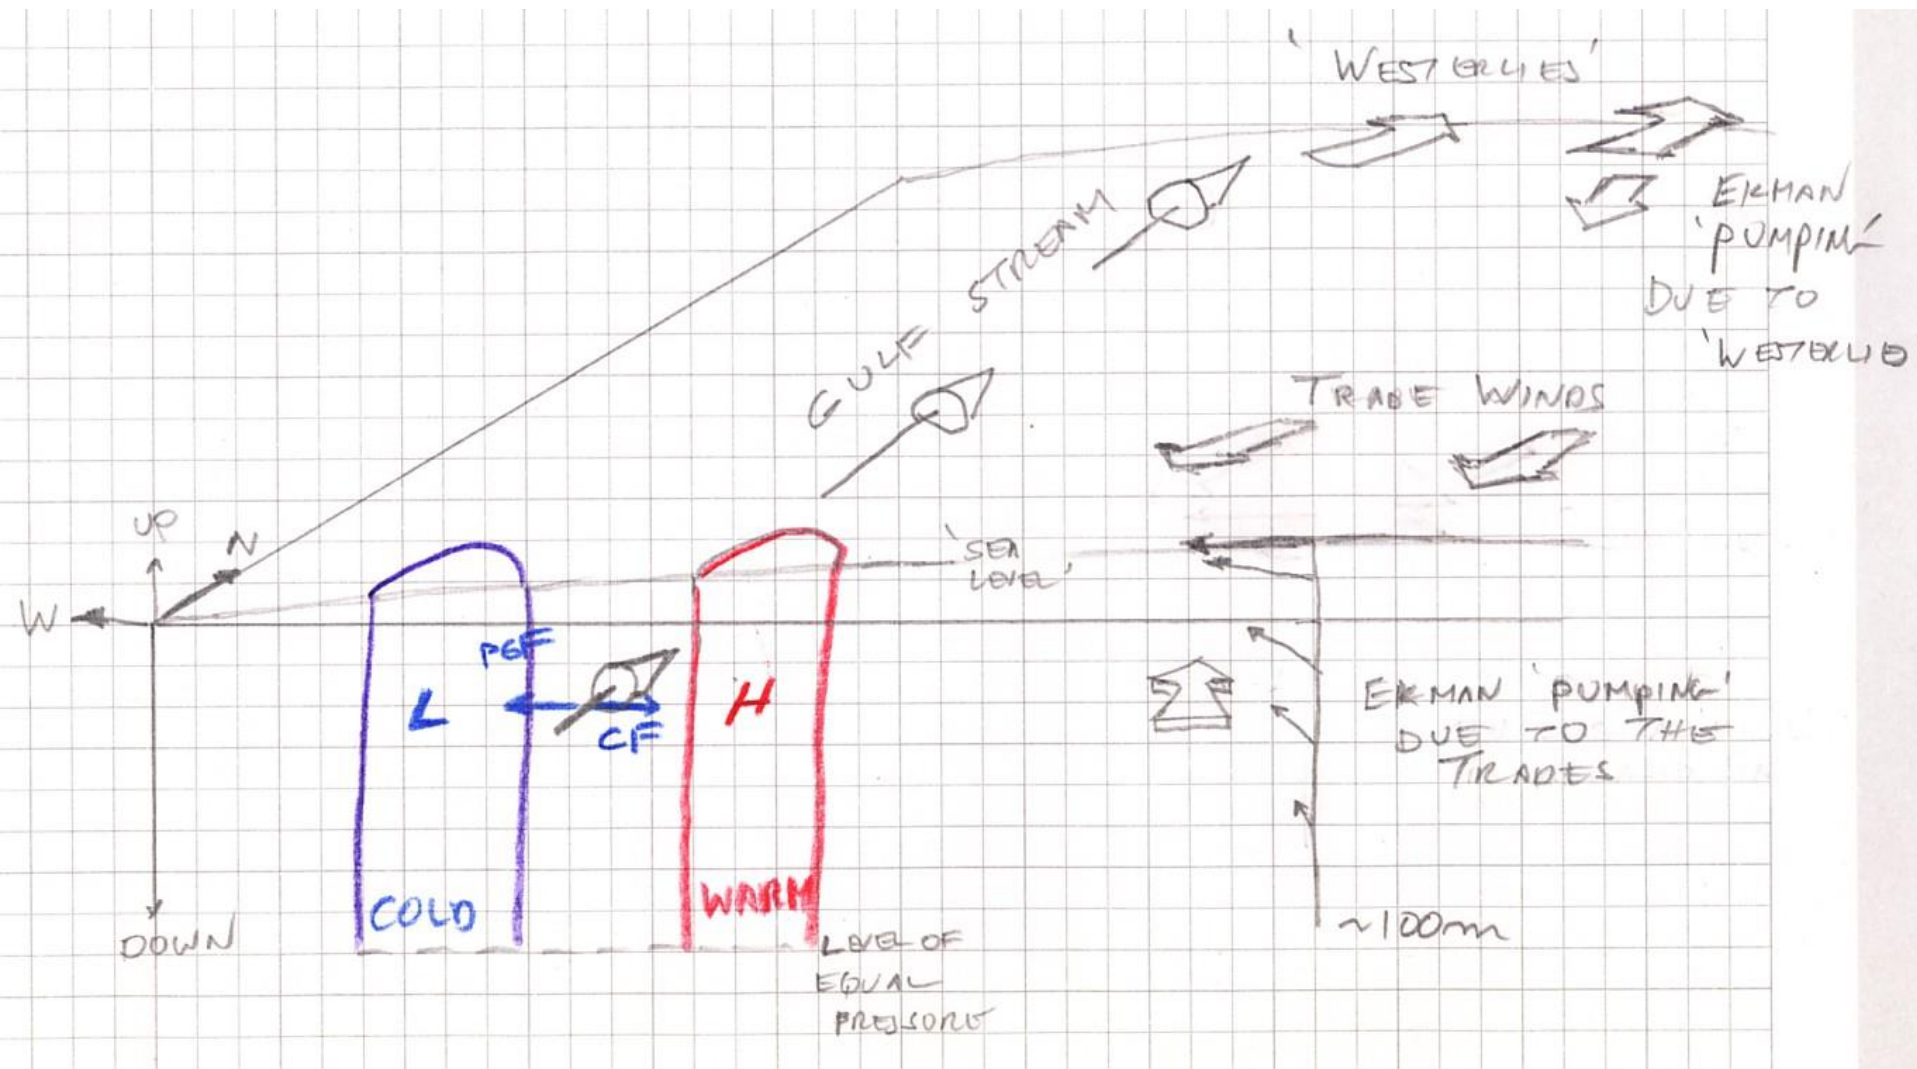 'WESTERLIES'
EKMAN
'PUMPING'
DUE TO
'WESTERLIE
GULF STREAM
TRADE WINDS
UP
N
W
'SEA
LEVEL'
PGF
L
CF
H
EKMAN 'PUMPING'
DUE TO THE
TRADES
COLD
WARM
~100m
DOWN
LEVEL OF
EQUAL
PRESSURE